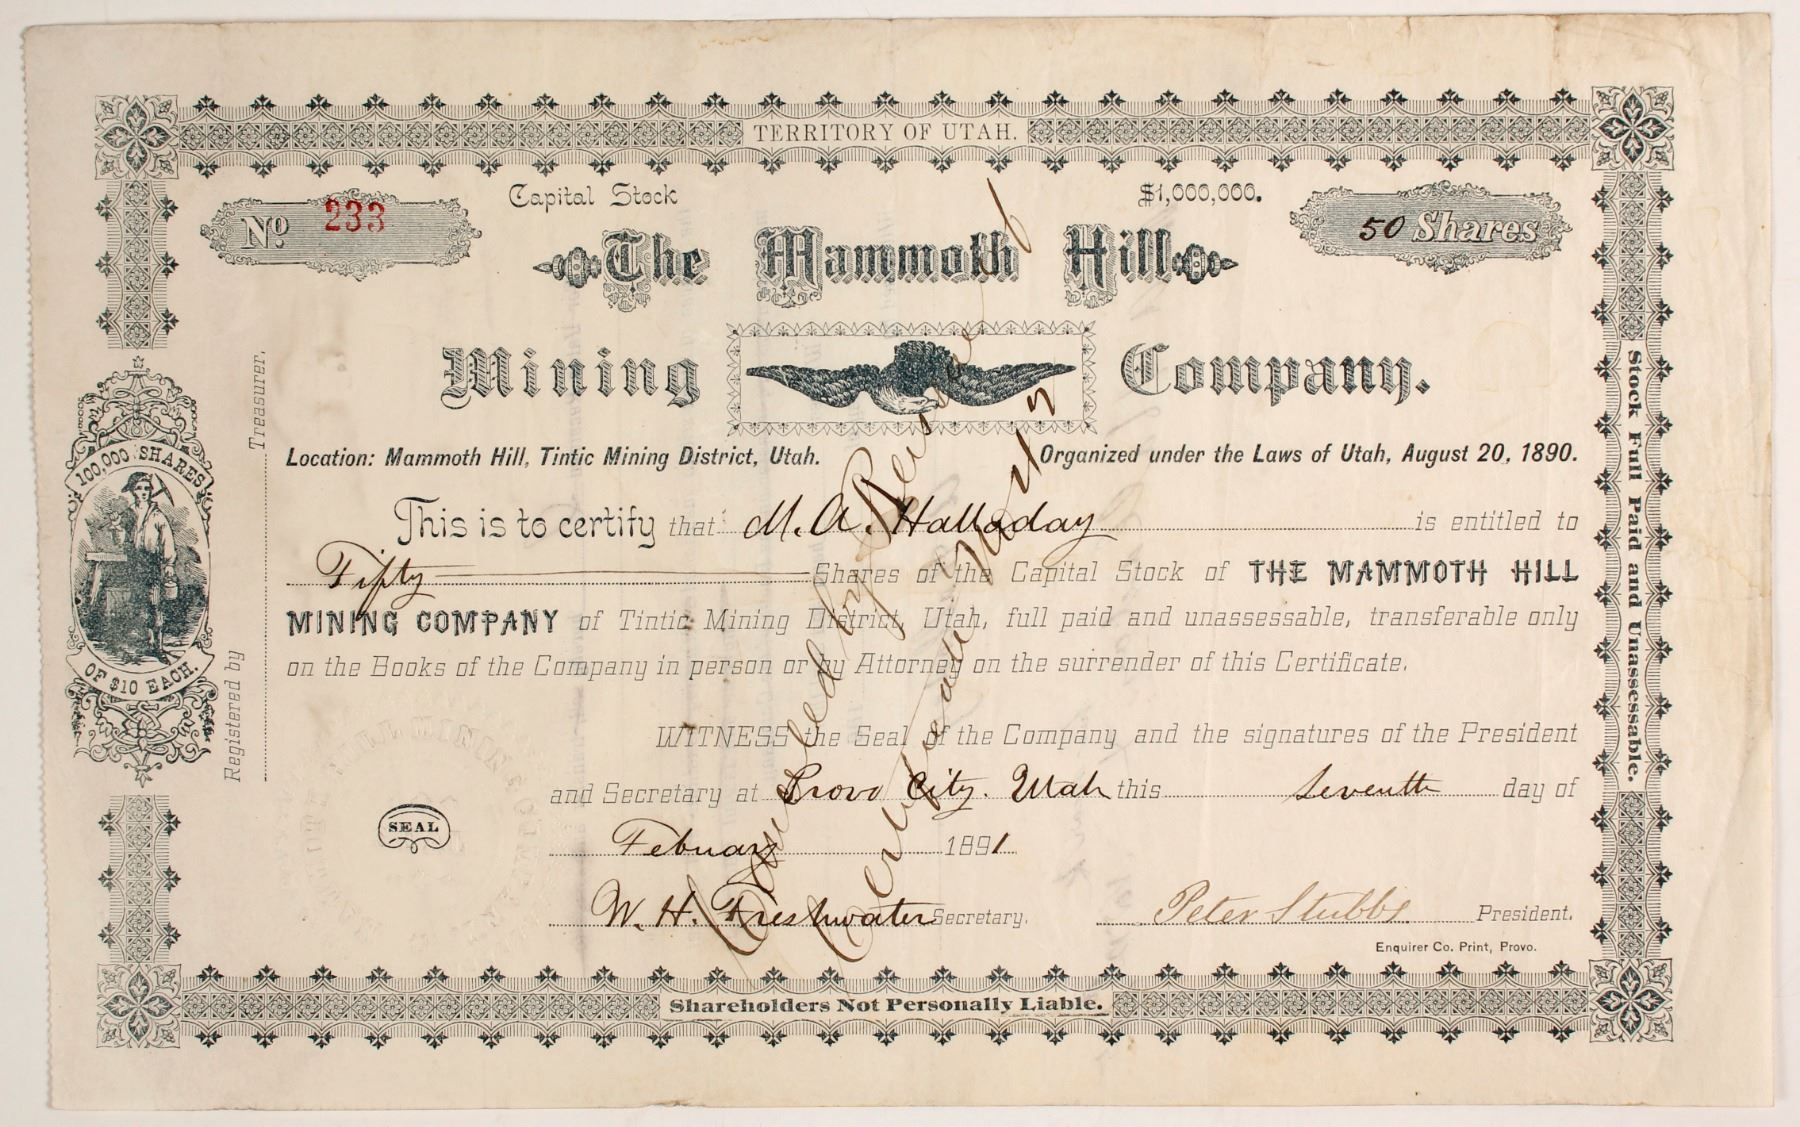 TERRITORY OF UTAH.
No. 233
Capital Stock $1,000,000.
50 Shares
The Mammoth Hill
Mining Company.
Location: Mammoth Hill, Tintic Mining District, Utah.
Organized under the Laws of Utah, August 20, 1890.
This is to certify that M. A. Halladay is entitled to
Fifty Shares of the Capital Stock of THE MAMMOTH HILL
MINING COMPANY of Tintic Mining District, Utah, full paid and unassessable, transferable only
on the Books of the Company in person or by Attorney on the surrender of this Certificate.
WITNESS the Seal of the Company and the signatures of the President
and Secretary at Provo City. Utah this Seventh day of
February 1891
W. H. Freshwater Secretary.
Peter Stubbs President.
Enquirer Co. Print, Provo.
SEAL
Shareholders Not Personally Liable.
Registered by Treasurer.
100,000 SHARES
OF $10 EACH.
Stock Full Paid and Unassessable.
Cancelled by